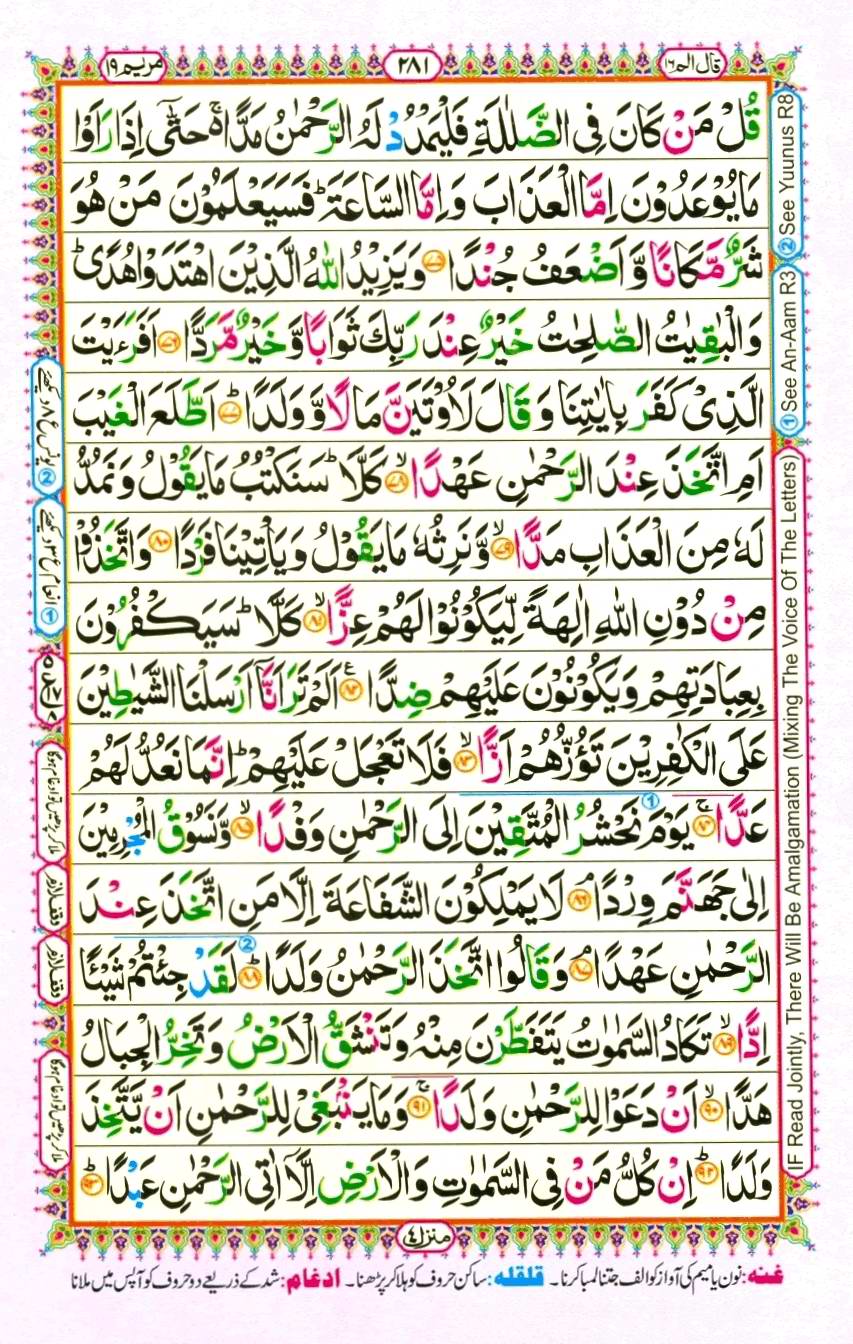 قال الم ١٦
٢٨١
مريم ١٩
قُلْ مَنْ كَانَ فِى الضَّلٰلَةِ فَلْيَمْدُدْ لَهُ الرَّحْمٰنُ مَدًّا ۚ حَتّٰۤى اِذَا رَاَوْا
مَا يُوْعَدُوْنَ اِمَّا الْعَذَابَ وَ اِمَّا السَّاعَةَ ؕ فَسَيَعْلَمُوْنَ مَنْ هُوَ
شَرٌّ مَّكَانًا وَّ اَضْعَفُ جُنْدًا ﴿۷۵﴾ وَ يَزِيْدُ اللّٰهُ الَّذِيْنَ اهْتَدَوْا هُدًى ؕ
وَ الْبٰقِيٰتُ الصّٰلِحٰتُ خَيْرٌ عِنْدَ رَبِّكَ ثَوَابًا وَّ خَيْرٌ مَّرَدًّا ﴿۷۶﴾ اَفَرَءَيْتَ
الَّذِىْ كَفَرَ بِاٰيٰتِنَا وَ قَالَ لَاُوْتَيَنَّ مَالًا وَّ وَلَدًا ﴿۷۷﴾ ؕ اَطَّلَعَ الْغَيْبَ
اَمِ اتَّخَذَ عِنْدَ الرَّحْمٰنِ عَهْدًا ﴿۷۸﴾ ۙ كَلَّا ؕ سَنَكْتُبُ مَا يَقُوْلُ وَ نَمُدُّ
لَهٗ مِنَ الْعَذَابِ مَدًّا ﴿۷۹﴾ ۙ وَّ نَرِثُهٗ مَا يَقُوْلُ وَ يَاْتِيْنَا فَرْدًا ﴿۸۰﴾ وَ اتَّخَذُوْا
مِنْ دُوْنِ اللّٰهِ اٰلِهَةً لِّيَكُوْنُوْا لَهُمْ عِزًّا ﴿۸۱﴾ ۙ كَلَّا ؕ سَيَكْفُرُوْنَ
بِعِبَادَتِهِمْ وَ يَكُوْنُوْنَ عَلَيْهِمْ ضِدًّا ﴿۸۲﴾ ۧ اَلَمْ تَرَ اَنَّاۤ اَرْسَلْنَا الشَّيٰطِيْنَ
عَلَى الْكٰفِرِيْنَ تَؤُزُّهُمْ اَزًّا ﴿۸۳﴾ ۙ فَلَا تَعْجَلْ عَلَيْهِمْ ؕ اِنَّمَا نَعُدُّ لَهُمْ
عَدًّا ﴿۸۴﴾ ۚ يَوْمَ نَحْشُرُ الْمُتَّقِيْنَ اِلَى الرَّحْمٰنِ وَفْدًا ﴿۸۵﴾ ۙ وَّ نَسُوْقُ الْمُجْرِمِيْنَ
اِلٰى جَهَنَّمَ وِرْدًا ﴿۸۶﴾ ۘ لَا يَمْلِكُوْنَ الشَّفَاعَةَ اِلَّا مَنِ اتَّخَذَ عِنْدَ
الرَّحْمٰنِ عَهْدًا ﴿۸۷﴾ ۘ وَ قَالُوا اتَّخَذَ الرَّحْمٰنُ وَلَدًا ﴿۸۸﴾ ؕ لَقَدْ جِئْتُمْ شَيْـًٔا
اِدًّا ﴿۸۹﴾ ۙ تَكَادُ السَّمٰوٰتُ يَتَفَطَّرْنَ مِنْهُ وَ تَنْشَقُّ الْاَرْضُ وَ تَخِرُّ الْجِبَالُ
هَدًّا ﴿۹۰﴾ ۙ اَنْ دَعَوْا لِلرَّحْمٰنِ وَلَدًا ﴿۹۱﴾ ۚ وَ مَا يَنْۢبَغِىْ لِلرَّحْمٰنِ اَنْ يَّتَّخِذَ
وَلَدًا ﴿۹۲﴾ ؕ اِنْ كُلُّ مَنْ فِى السَّمٰوٰتِ وَ الْاَرْضِ اِلَّاۤ اٰتِى الرَّحْمٰنِ عَبْدًا ﴿۹۳﴾ ؕ
② See Yuunus R8
① See An-Aam R3
IF Read Jointly, There Will Be Amalgamation (Mixing The Voice Of The Letters)
② یونس ع ۸ دیکھئے
① انعام ع ۳ دیکھئے
ملا کر پڑھیں تو ادغام ہوگا
وقف لازم
وقف لازم
ملا کر پڑھیں تو ادغام ہوگا
منزل ٤
غنہ: نون یا میم کی آواز کو الف جتنا لمبا کرنا۔ قلقلہ: ساکن حروف کو ہلا کر پڑھنا۔ ادغام: شد کے ذریعے دو حروف کو آپس میں ملانا